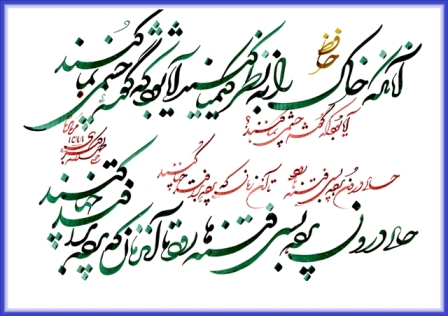 حافظ
آنانکه خاک را به نظر کیمیا کنند آیا بود که گوشه چشمی بما کنند
آیا بود که گوشه چشمی بما کنند؟
حالی درون پرده بسی فتنه میرود تا آن زمان که پرده برافتد چها کنند
حالی درون پرده بسی فتنه میرود تا آن زمان که پرده برافتد چها کنند